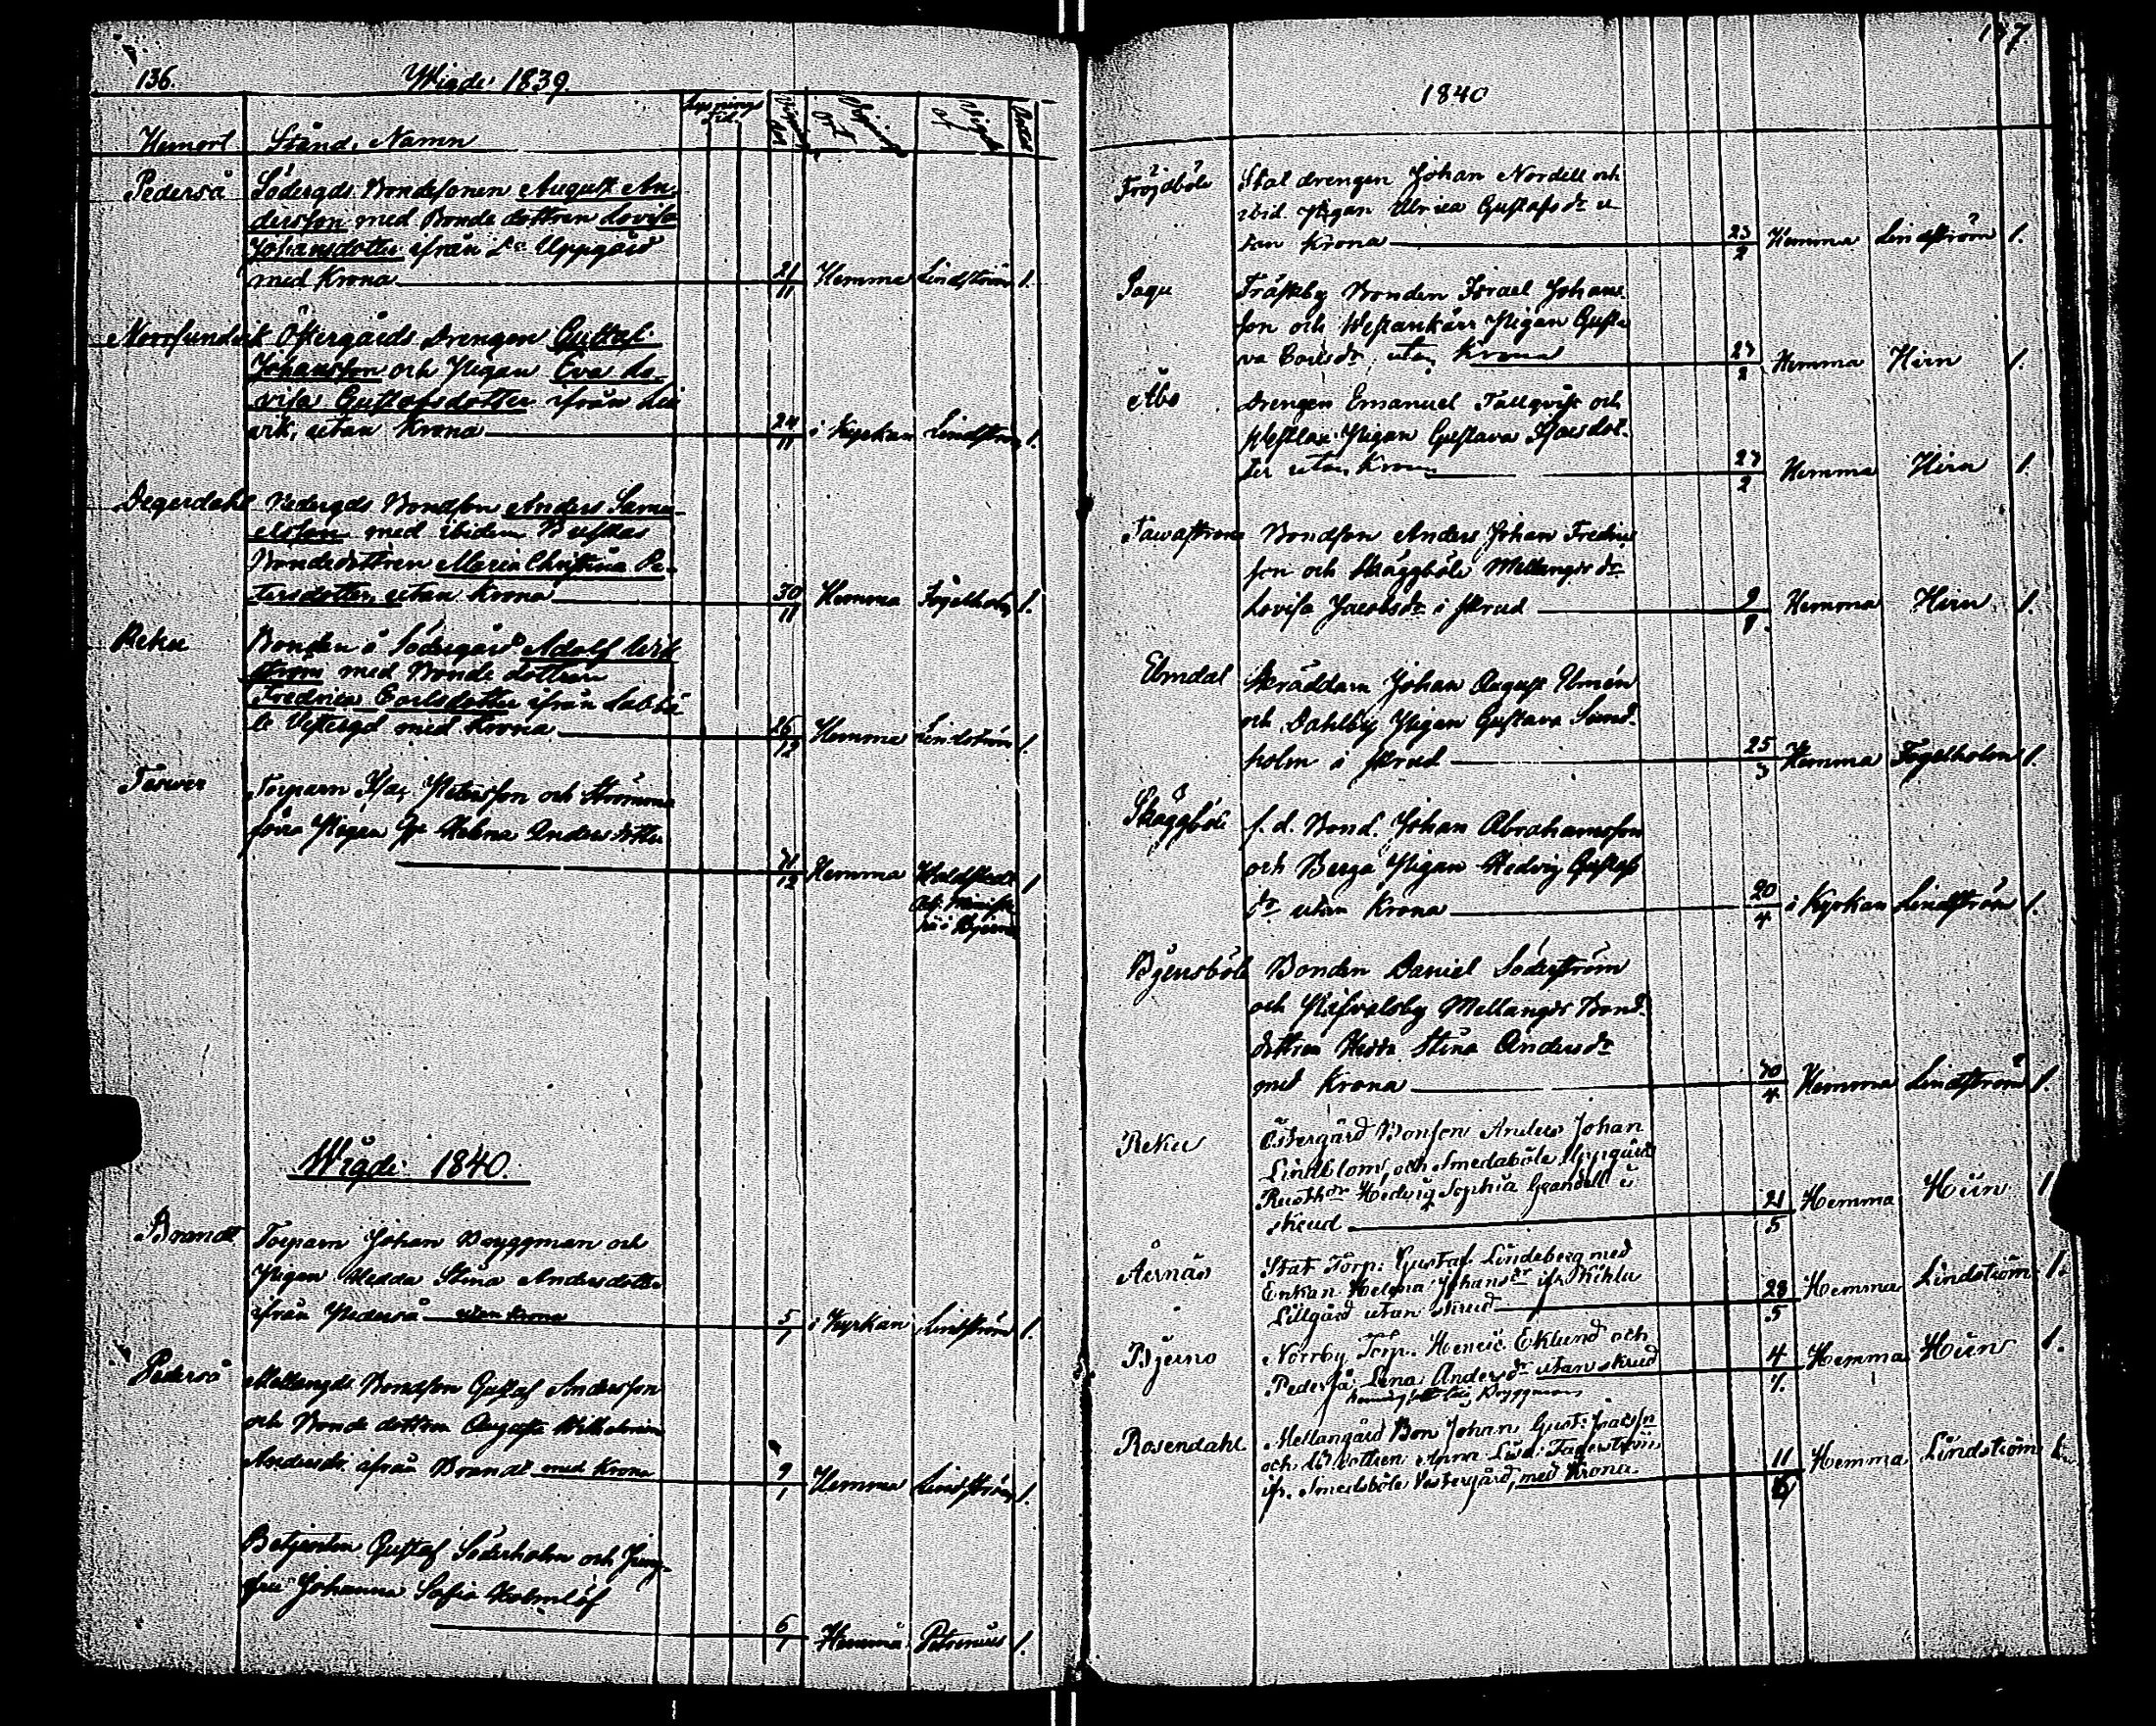 136.
Wigde 1839.
Lysnings
tid.
Hemort Stånd, Namn
Pederså Södergds Bondesonen August An-
dersson med Bonde dottren Lovisa
Johansdotter ifrån Uppgård
med Krona 21/11 Hemma Lindström 1.
Norrsundvik Östergårds Drengen Gustaf
Johansson och Pigan Eva Lo-
visa Gustafsdotter ifrån
vik, utan Krona 24/11 i Kyrkan Lindström 1.
Degerdahl Nedergds Bondson Anders Samu-
elsson med ibidem Buskas
Bondedottren Maria Christina Pe-
tersdotter, utan Krona 30/11 Hemma Fogelholm 1.
Reku Bonden å Södergård Adolf Wik
ström med Bonde dottren
Fredrica Carlsdotter ifrån Labbö
le Vestergd med Krona 26/12 Hemma Lindström 1.
Torparn Isac Petersson och Strömma
Pigan Helena Anders dotter
31/12 Hemma 1
Wigde 1840.
Torparn Johan Bryggman och
Pigan Hedda Stina Andersdotter
ifrån Pederså utan Krona 5/1 i Kyrkan Lindström 1.
Pederså Mellangds Bondson Gustaf Andersson
och Bonde dottren Augusta Wilhelmina
Andersdr. ifrån Brandt med Krona 9/1 Hemma Lindström 1.
Betjenten Gustaf Söderholm och Jung-
fru Johanna Sofia Holmlöf
6/1 Hemma Petrenius 1.
137
1840
Fröjdböle Stat drengen Johan Nordell och
ibid. Pigan Ulrica Gustafsdr. u
tan Krona 23/2 Hemma Lindström 1.
Pagu Träskby Bonden Israel Johans
son och Westankärr Pigan Gusta
va Carlsdr. utan Krona 27/2 Hemma Hirn 1.
Åbo Drengen Emanuel Tallqvist och
Pigan Gustava Isacsdot-
ter utan Krona 27/2 Hemma Hirn 1.
Tawastrom Bondson Anders Johan Fredric
son och Skäggböle Mellangds dr.
Lovisa Jacobsdr. i skrud 9/ Hemma Hirn 1.
Elmdal Skräddarn Johan August Elmén
och Dahlby Pigan Gustava Sund-
holm i skrud 25/3 Hemma Fogelholm 1.
Skäggböle f. d. Bond. Johan Abrahamsson
och Berga Pigan Hedvig Gustafs
dr. utan Krona 20/4 i Kyrkan Lindström 1.
Bjensböle Bonden Daniel Söderström
och Mellangds Bond-
dottren Hedda Stina Andersdr.
med Krona 30/4 Hemma Lindström 1.
Reku Östergård Bonson Anders Johan
Lindblom, och Smedaböle Uppgård
Rusthdr. Hedvig Sophia Grandell i
skrud 21/5 Hemma Hirn 1
Åernäs Stat Torp. Gustaf Lindeberg med
Enkan Helena Johansdr. ifr. Kihla
Lillgård utan skrud 28/5 Hemma Lindström 1.
Bjerno Norrby Torp. Henric Eklund och
Pederså Lena Andersdr. utan skrud 4/ Hemma Hirn 1.
Bryggmans
Rosendahl Mellangård Bon Johan Gust. Isacssn
och dottren Anna Lovis. Fagerström
ifr. Smedsböle Vestergård, med Krona 11/6 Hemma Lindström 1.